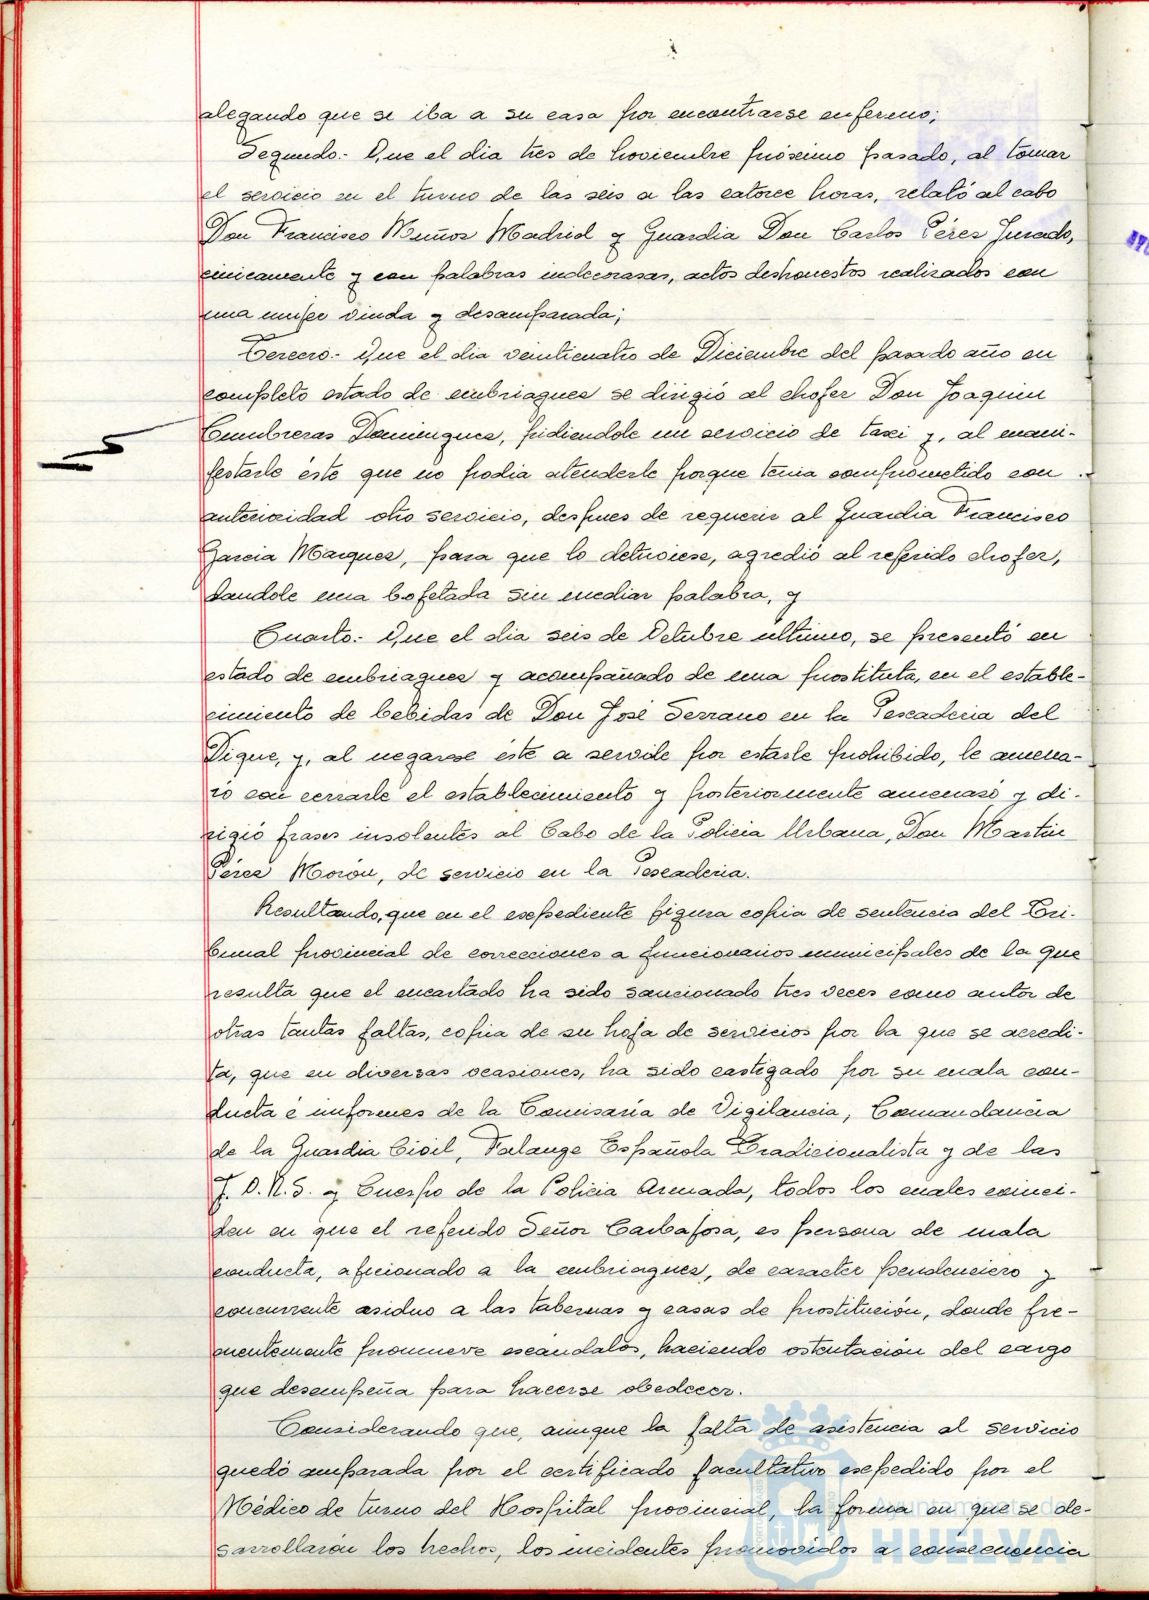 alegando que se iba a su casa por encontrarse enfermo;
Segundo.- Que el dia tres de Noviembre próximo pasado, al tomar
el servicio en el turno de las seis a las catorce horas, relató al cabo
Don Francisco Muñoz Madrid y Guardia Don Carlos Pérez Jurado,
cinicamente y con palabras indecorosas, actos deshonestos realizados con
una mujer viuda y desamparada;
Tercero.- Que el dia veinticuatro de Diciembre del pasado año en
completo estado de embriaguez se dirigió al chofer Don Joaquin
Cumbreras Dominguez, pidiendole un servicio de taxi y, al mani-
festarle éste que no podia atenderle porque tenia comprometido con
anterioridad otro servicio, despues de requerir al Guardia Francisco
Garcia Marquez, para que lo detuviese, agredió al referido chofer,
dandole una bofetada sin mediar palabra, y
Cuarto.- Que el dia seis de Octubre último, se presentó en
estado de embriaguez y acompañado de una prostituta, en el estable-
cimiento de bebidas de Don José Serrano en la Pescaderia del
Dique, y, al negarse éste a servile por estarle prohibido, le amena-
zó con cerrarle el establecimiento y posteriormente amenazó y di-
rigió frases insolentes al Cabo de la Policia Urbana, Don Martin
Pérez Morón, de servicio en la Pescaderia.
Resultando, que en el expediente figura copia de sentencia del Tri-
bunal provincial de correcciones a funcionarios municipales de la que
resulta que el encartado ha sido sancionado tres veces como autor de
otras tantas faltas, copia de su hoja de servicios por la que se acredi-
ta, que en diversas ocasiones, ha sido castigado por su mala con-
ducta é informes de la Comisaría de Vigilancia, Comandancia
de la Guardia Civil, Falange Española Tradicionalista y de las
J.O.N.S. y Cuerpo de la Policia Armada, todos los cuales coinci-
den en que el referido Señor Carbajosa, es persona de mala
conducta, aficionado a la embriaguez, de caracter pendenciero y
concurrente asiduo a las tabernas y casas de prostitución, donde fre-
cuentemente promueve escándalos, haciendo ostentación del cargo
que desempeña para hacerse obedecer.
Considerando que, aunque la falta de asistencia al servicio
quedó amparada por el certificado facultativo expedido por el
Médico de turno del Hospital provincial, la forma en que se de-
sarrollaron los hechos, los incidentes promovidos a consecuencia
Ayuntamiento de
HUELVA